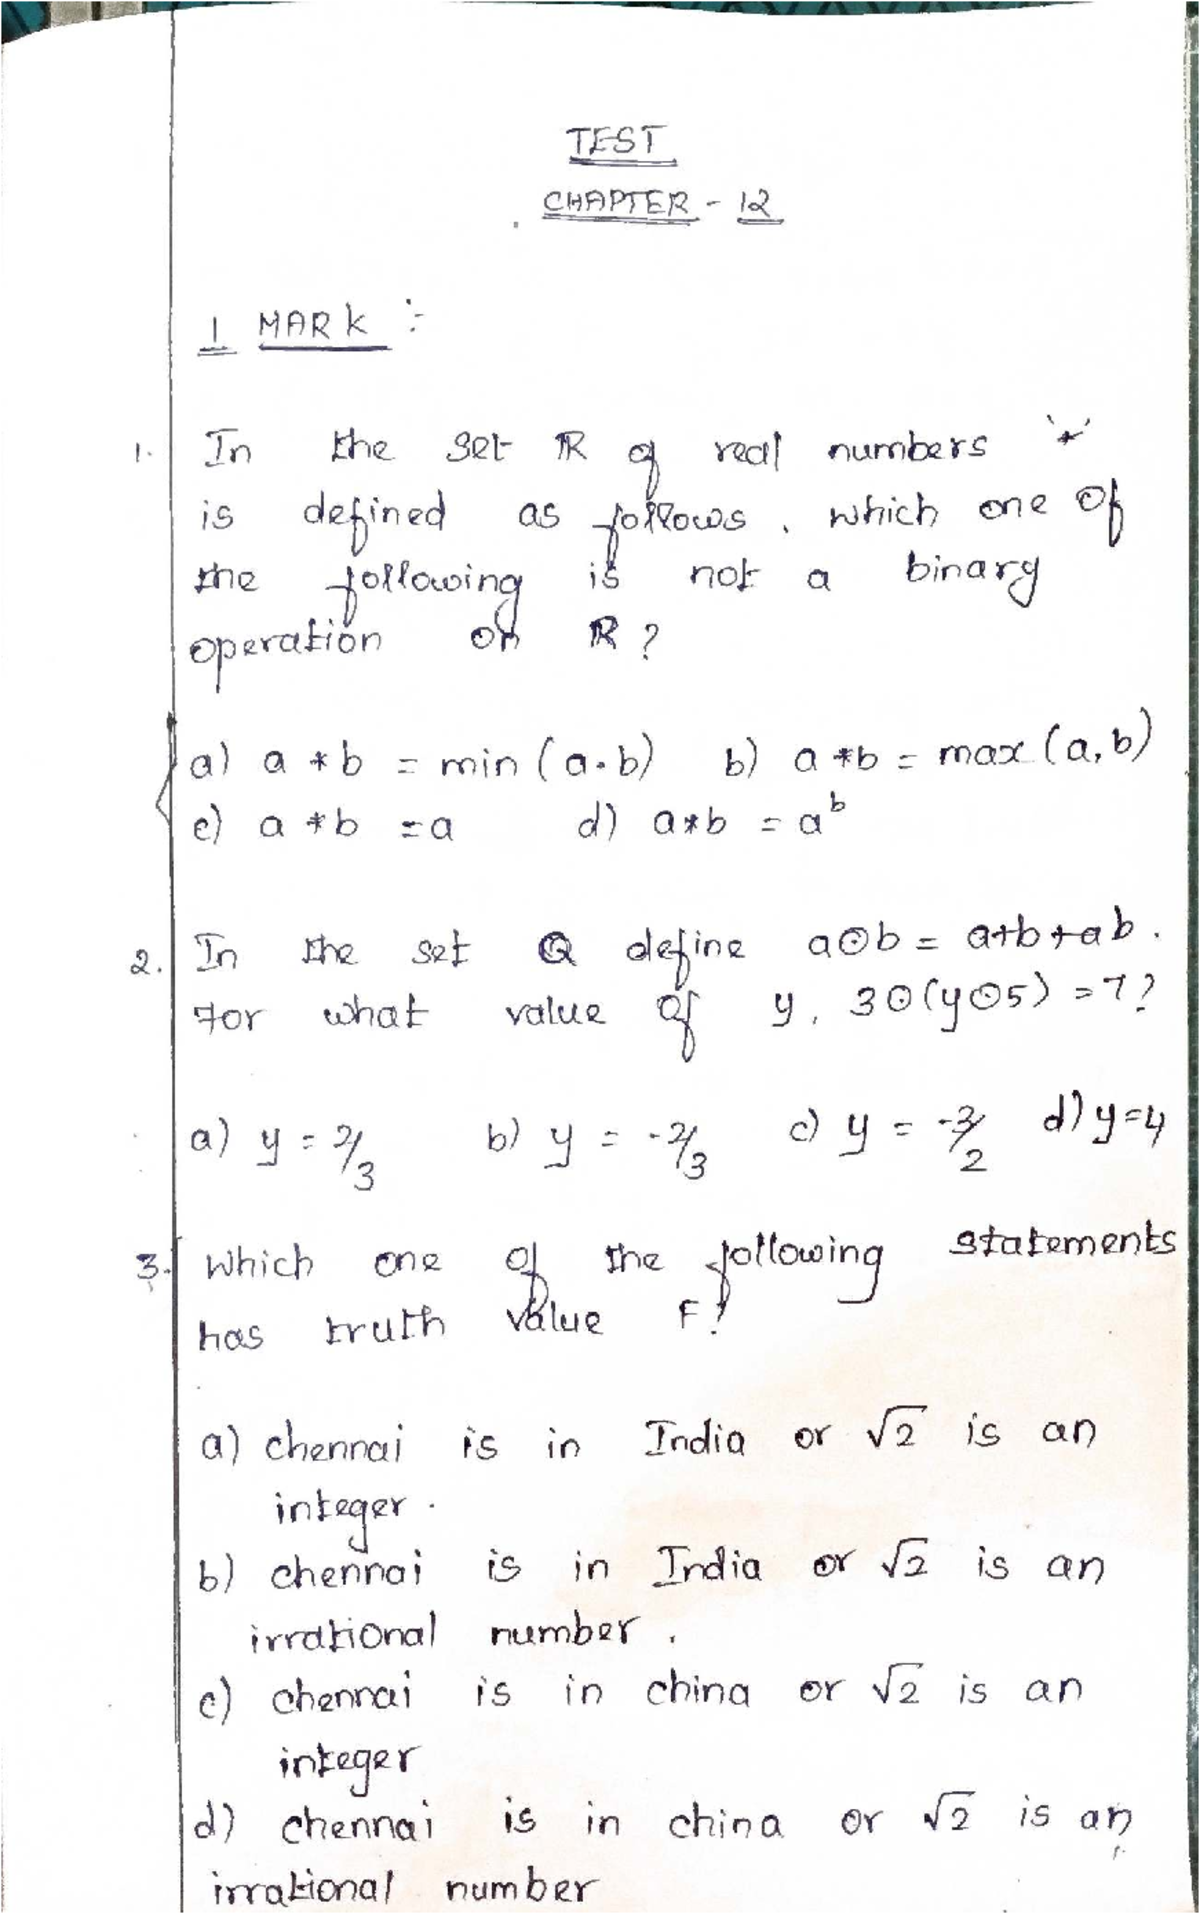 TEST
CHAPTER - 12
1 MARK :-
1. In the set ℝ of real numbers '*'
is defined as follows. which one of
the following is not a binary
operation on ℝ?
a) a * b = min (a.b) b) a *b = max (a,b)
c) a * b = a d) a*b = a^b
2. In the set Q define a⊙b = a+b+ab.
For what value of y, 3⊙(y⊙5) = 7?
a) y = 2/3 b) y = -2/3 c) y = -3/2 d) y=4
3. which one of the following statements
has truth value F?
a) chennai is in India or √2 is an
integer.
b) chennai is in India or √2 is an
irrational number.
c) chennai is in china or √2 is an
integer
d) chennai is in china or √2 is an
irrational number